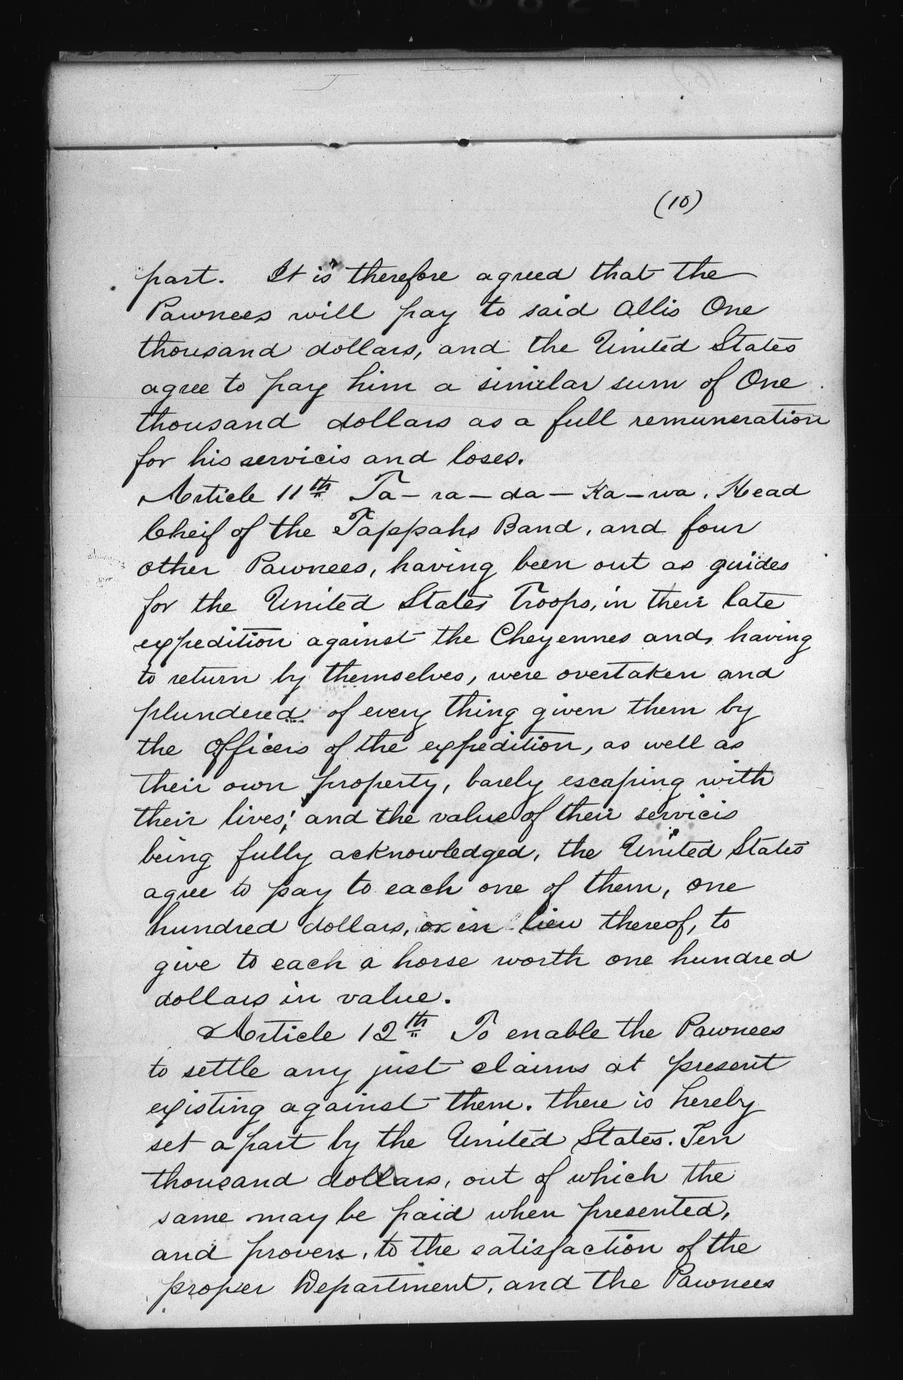 (10)
part. It is therefore agreed that the
Pawnees will pay to said Allis One
thousand dollars, and the United States
agree to pay him a similar sum of One
thousand dollars as a full remuneration
for his servicis and loses.
Article 11th Ta-ra-da-Ka-wa, Head
Cheif of the Tappahs Band, and four
other Pawnees, having been out as guides
for the United States Troops, in their late
expedition against the Cheyennes and, having
to return by themselves, were overtaken and
plundered of every thing given them by
the Officers of the expedition, as well as
their own property, barely escaping with
their lives; and the value of their servicis
being fully acknowledged, the United States
agree to pay to each one of them, one
hundred dollars, or in lieu thereof, to
give to each a horse worth one hundred
dollars in value.
Article 12th To enable the Pawnees
to settle any just claims at present
existing against them. there is hereby
set apart by the United States. Ten
thousand dollars, out of which the
same may be paid when presented,
and proven, to the satisfaction of the
proper Department, and the Pawnees